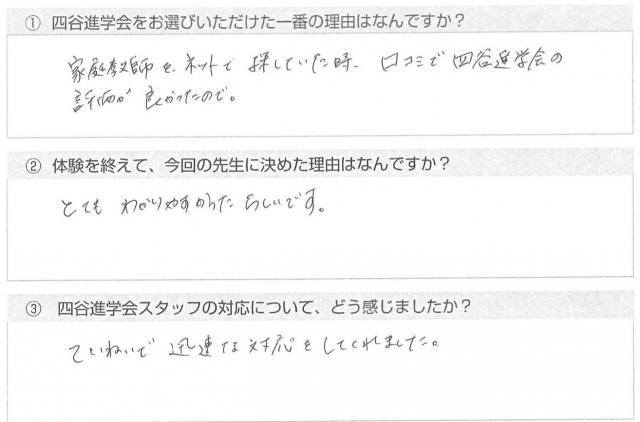 ① 四谷進学会をお選びいただけた一番の理由はなんですか？
家庭教師を、ネットで 探していた時、口コミで 四谷進学会の
評価が 良かったので。
② 体験を終えて、今回の先生に決めた理由はなんですか？
とても わかりやすかった らしいです。
③ 四谷進学会スタッフの対応について、どう感じましたか？
ていねいで 迅速な対応をしてくれました。